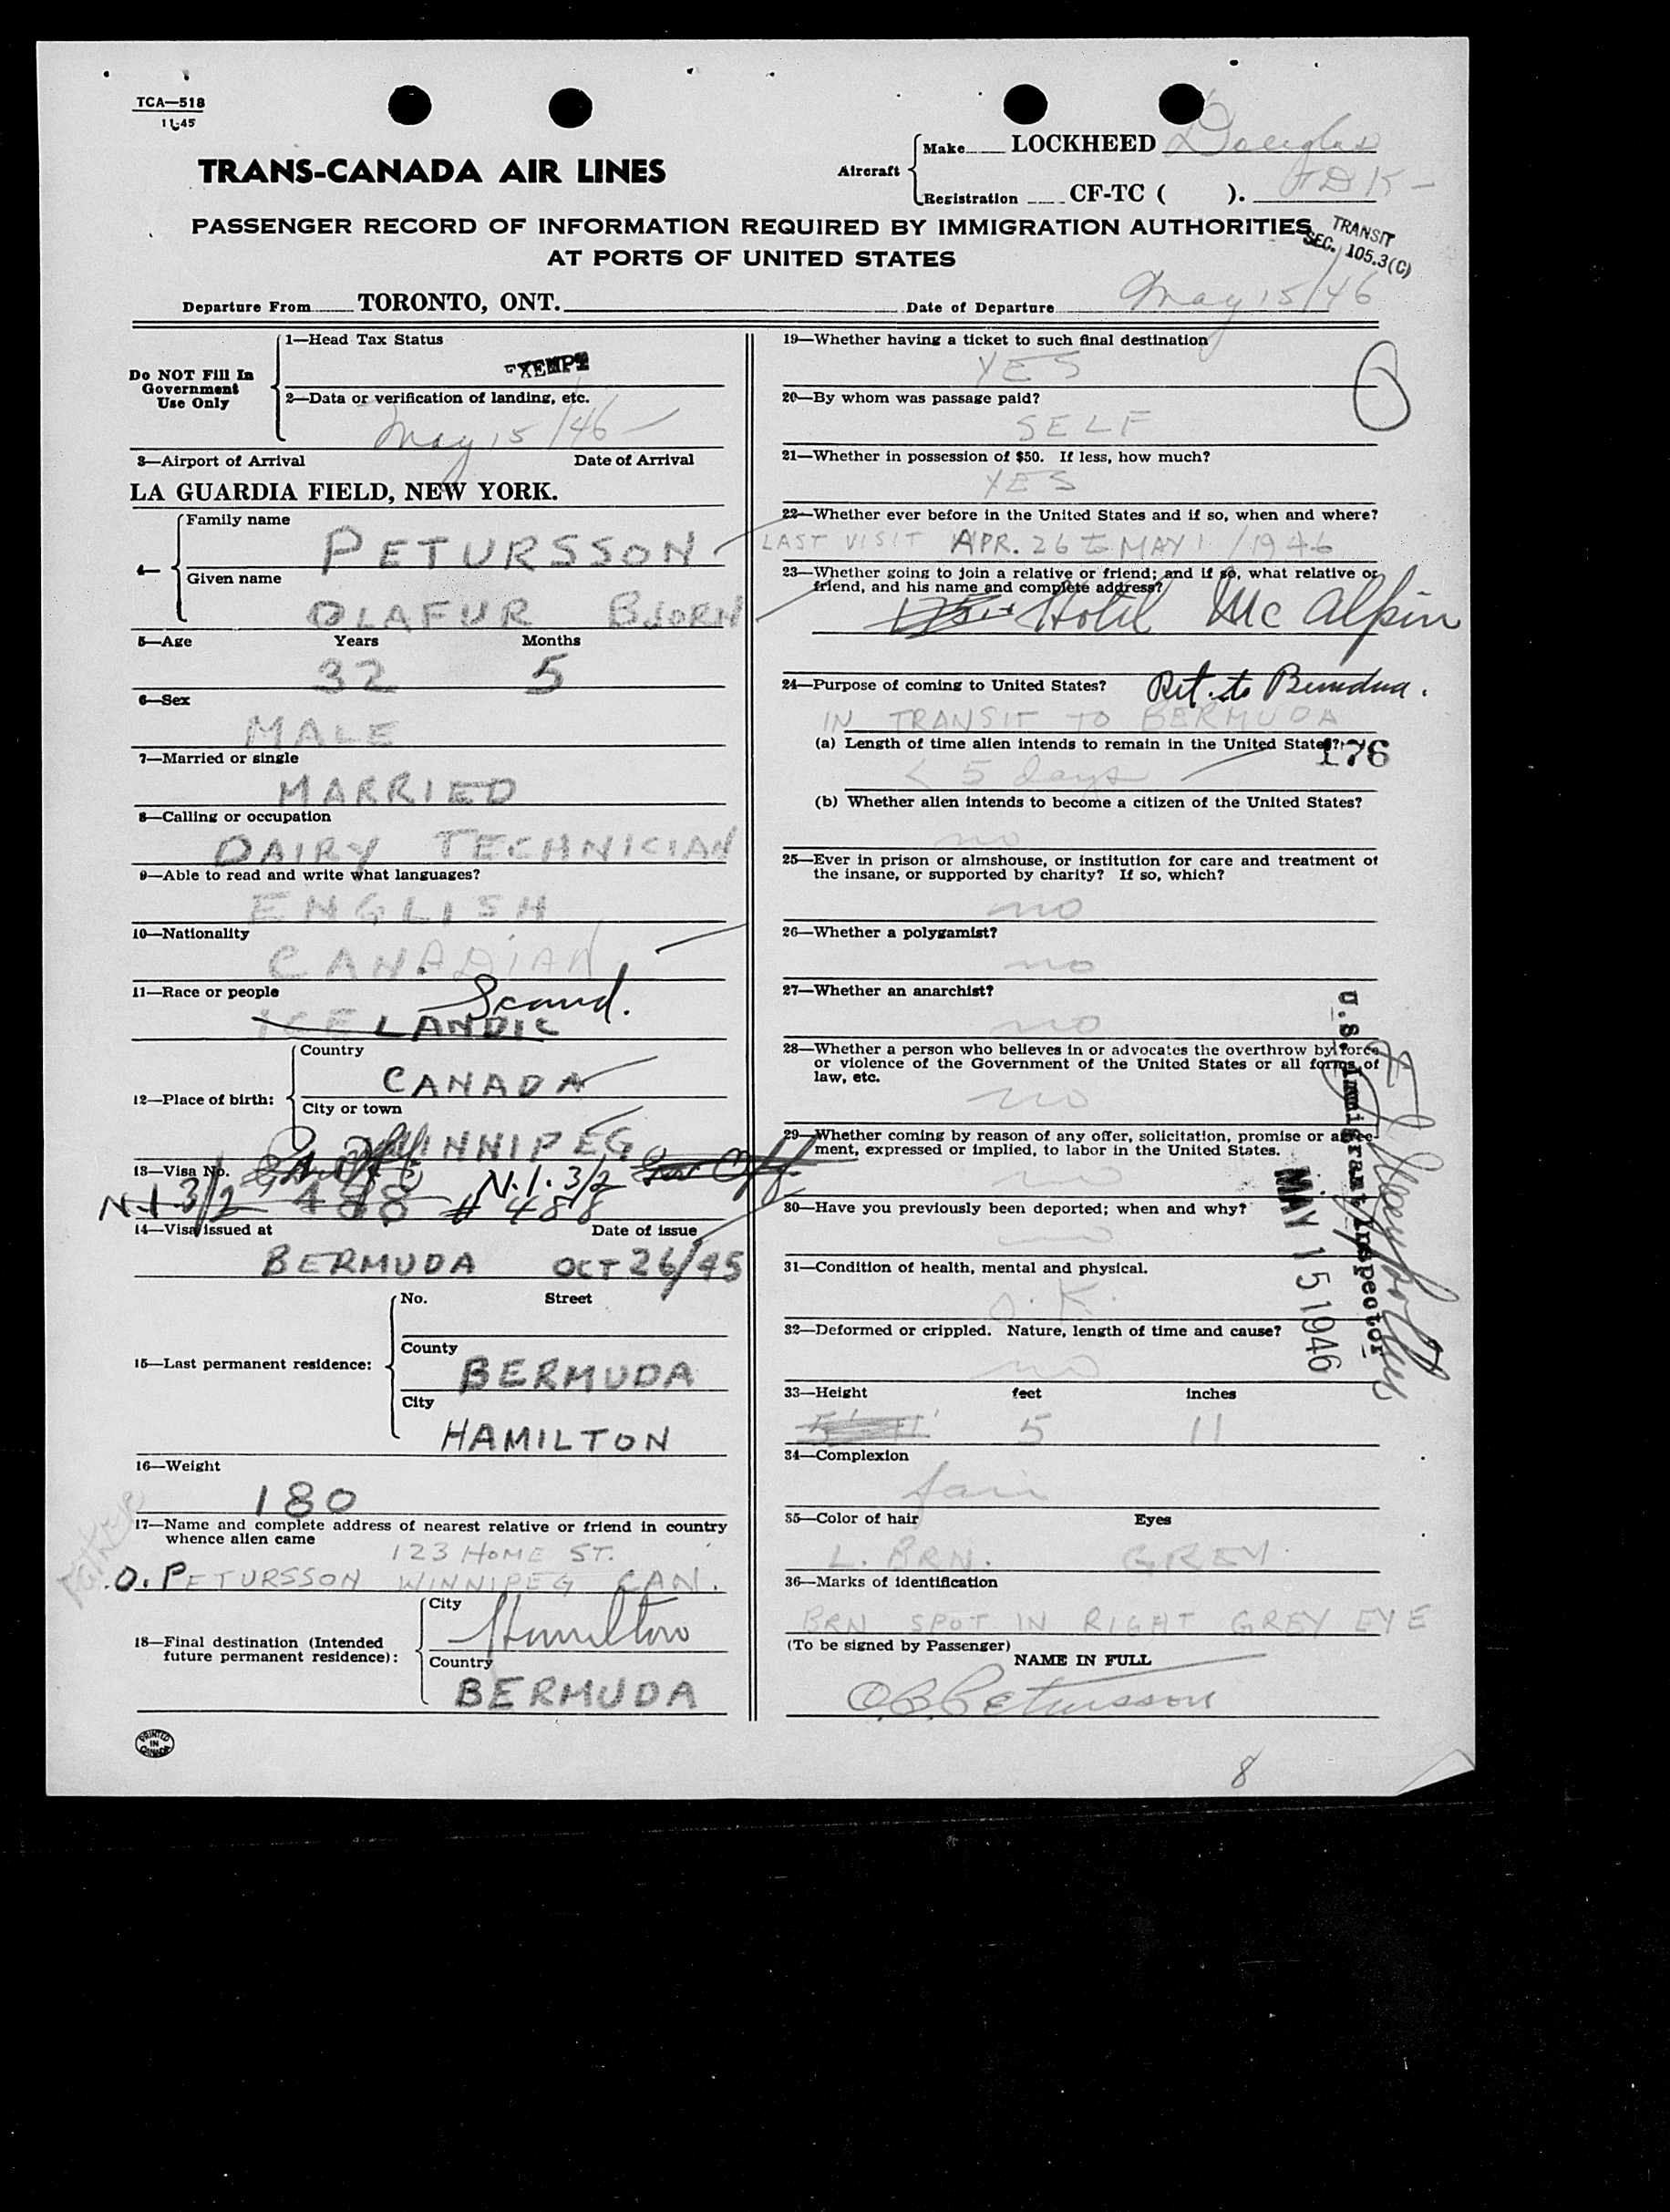 TCA—518
11-45
TRANS-CANADA AIR LINES
Aircraft
Make LOCKHEED Douglas
Registration CF-TC ( ).
PASSENGER RECORD OF INFORMATION REQUIRED BY IMMIGRATION AUTHORITIES
AT PORTS OF UNITED STATES
TRANSIT
SEC. 105.3(C)
Departure From TORONTO, ONT. Date of Departure May 15/46
Do NOT Fill In
Government
Use Only
1—Head Tax Status
EXEMPT
2—Data or verification of landing, etc.
May 15/46
3—Airport of Arrival Date of Arrival
LA GUARDIA FIELD, NEW YORK.
4—
Family name
PETURSSON
Given name
OLAFUR BJORN
5—Age Years Months
32 5
6—Sex
MALE
7—Married or single
MARRIED
8—Calling or occupation
DAIRY TECHNICIAN
9—Able to read and write what languages?
ENGLISH
10—Nationality
CANADIAN
11—Race or people
Scand.
ICELANDIC
12—Place of birth:
Country
CANADA
City or town
WINNIPEG
13—Visa No.
N.I. 3/2 488 N.I. 3/2
# 488
14—Visa issued at Date of issue
BERMUDA OCT 26/45
15—Last permanent residence:
No. Street
County
BERMUDA
City
HAMILTON
16—Weight
180
17—Name and complete address of nearest relative or friend in country
whence alien came
FATHER
123 HOME ST.
O. PETURSSON WINNIPEG CAN.
18—Final destination (Intended
future permanent residence):
City
Hamilton
Country
BERMUDA
PRINTED
IN
CANADA
19—Whether having a ticket to such final destination
YES
20—By whom was passage paid?
SELF
21—Whether in possession of $50. If less, how much?
YES
22—Whether ever before in the United States and if so, when and where?
LAST VISIT APR. 26 to MAY 1/1946
23—Whether going to join a relative or friend; and if so, what relative or
friend, and his name and complete address?
Hotel McAlpin
24—Purpose of coming to United States? Ret. to Bermuda.
IN TRANSIT TO BERMUDA
(a) Length of time alien intends to remain in the United States?
176
< 5 days
(b) Whether alien intends to become a citizen of the United States?
no
25—Ever in prison or almshouse, or institution for care and treatment of
the insane, or supported by charity? If so, which?
no
26—Whether a polygamist?
no
27—Whether an anarchist?
no
28—Whether a person who believes in or advocates the overthrow by force
or violence of the Government of the United States or all forms of
law, etc.
no
29—Whether coming by reason of any offer, solicitation, promise or agree-
ment, expressed or implied, to labor in the United States.
no
30—Have you previously been deported; when and why?
no
31—Condition of health, mental and physical.
O.K.
32—Deformed or crippled. Nature, length of time and cause?
no
U.S. Immigrant Inspector
MAY 15 1946
33—Height feet inches
5' 11' 5 11
34—Complexion
fair
35—Color of hair Eyes
L. BRN. GREY
36—Marks of identification
BRN SPOT IN RIGHT GREY EYE
(To be signed by Passenger)
NAME IN FULL
O.B. Petursson
8